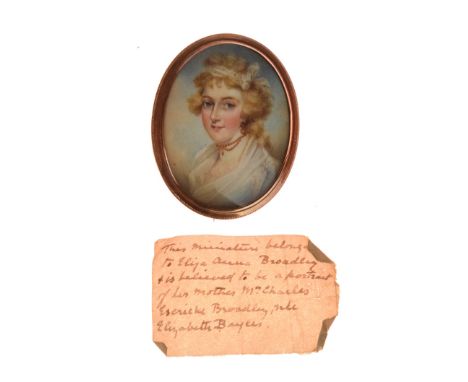 This miniature belongs
to Eliza Anna Broadley
& is believed to be a portrait
of her mother Mrs Charles
Broadley, née
Elizabeth